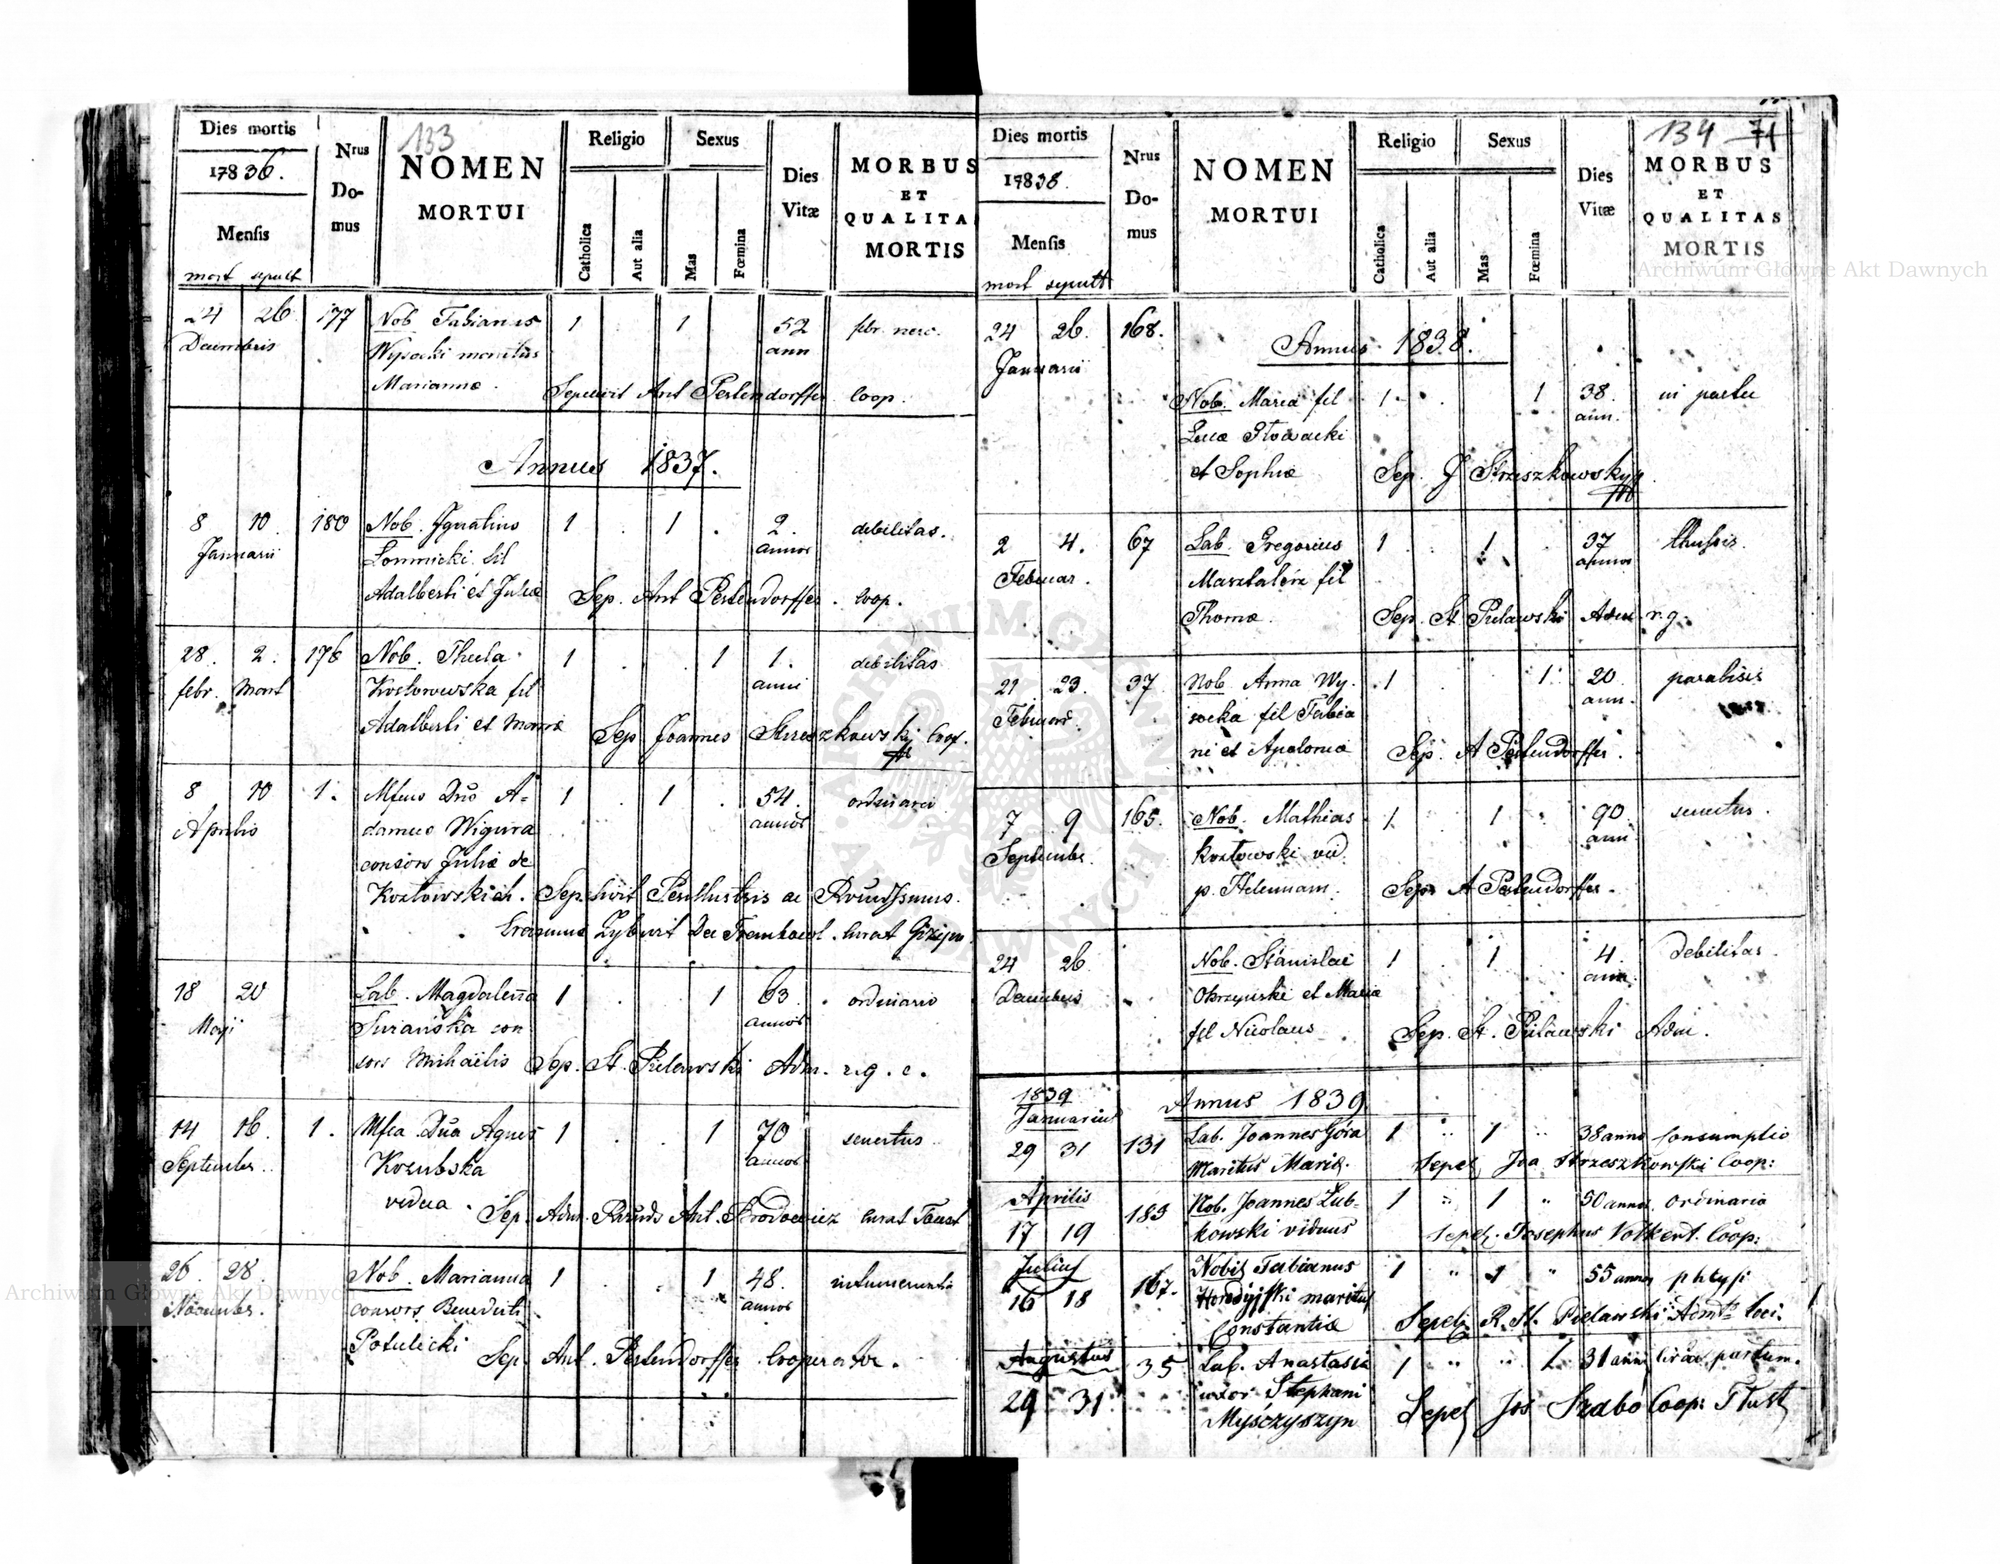 Dies mortis
17836.
Mensis
mort sepult
Nrus
Do-
mus
133
NOMEN
MORTUI
Religio
Catholica
Aut alia
Sexus
Mas
Fœmina
Dies
Vitæ
MORBUS
ET
QUALITA
MORTIS
24 26 177 Nob. Fabianus 1 1 52 febr. nerv.
Decembris Wysocki maritus ann
Mariannæ. Sepelivit Ant Pestendorffer Coop.
Annus 1837.
8 10. 180 Nob. Ignatius 1 . 1 . 2. debilitas.
Januarii Lomnicki fil annor
Adalberti et Juliæ Sep. Ant Pestendorffer. Coop.
28. 2. 176 Nob. Thecla 1 . . 1 1. debilitas
febr. Mart Kozłowska fil anni
Adalberti et Mariæ Sep Joannes Strzeszkowski Coop.
8 10 1. Mfcus Dnus A- 1 . 1 . 54. ordinaria
Aprilis damus Wigura annos
consors Juliæ de
Kozłowskich. Sepelivit Perillustris ac Rvndssmus.
Erasmus Zybwit Curat
18 20 Lab. Magdalena 1 . . 1 63 . ordinario
Maji annos
consors Mihaëlis Sep. St. Pielawski Adm. r. g. c.
14 16. 1. Mfca Dna Agnes 1 . . 1 70 senectus.
September. Kozubska annos
vidua. Sep. Ant. Brodowicz Curat Toust
26. 28. Nob. Marianna 1 . . 1 48. intumescentia
November. consors Benedicti annos
Potulicki Sep. Ant. Pestendorffer Cooperator.
Dies mortis
17838.
Mensis
mort sepult
Nrus
Do-
mus
NOMEN
MORTUI
Religio
Catholica
Aut alia
Sexus
Mas
Fœmina
Dies
Vitæ
134 71
MORBUS
ET
QUALITAS
MORTIS
24 26. 168. Annus 1838.
Januarii
Nob. Maria fil 1 . . 1 38. in partu
Lucæ Słowacki ann.
et Sophiæ Sep. J Strzeszkowsky
2 4. 67 Lab. Gregorius 1 . 1 37 thussis.
Februar. Masztalérz fil annor
Thomæ. Sep. St Pielawski Adm r. g.
21 23. 37 Nob. Anna Wy- 1 1 20 paralisis
Februar. socka fil Fabia ann.
ni et Apoloniæ Sep. A Pestendorffer.
7 9 165. Nob. Mathias 1 . 1 . 90 senectus.
September. Kozłowski vid. ann
p. Helenam. Sep. A Pestendorffer.
24 26 Nob. Stanislai 1 1 4. debilitas.
Decembris Okrzynski et Maria ann.
fil Nicolaus Sep. St. Pielawski Adm.
1839
Januarius Annus 1839
29 31 131 Lab. Joannes Góra 1 " 1 " 38 anno Consumptio
Maritus Mariæ. Sepel Joa Strzeszkowski Coop:
Aprilis
17 19 183 Nob. Joannes Lub- 1 " 1 " 50 annor. ordinaria
kowski viduus Sepel. Josephus Volkert. Coop:
Julius
16 18 167. Nobis Fabianus 1 " 1 " 55 annor phtysi
Horodyjski maritus
Constantiæ Sepeli R. St. Pielawski Admtr loci.
Augustus
29 31. 35 Lab. Anastasia 1 " " 1. 31 anni circa partum.
uxor Stephani
Myśczyszyn Sepel Jos Szabo Coop: Tłust
Archiwum Główne Akt Dawnych
Archiwum Główne Akt Dawnych
ARCHIWUM GŁÓWNE AKT DAWNYCH